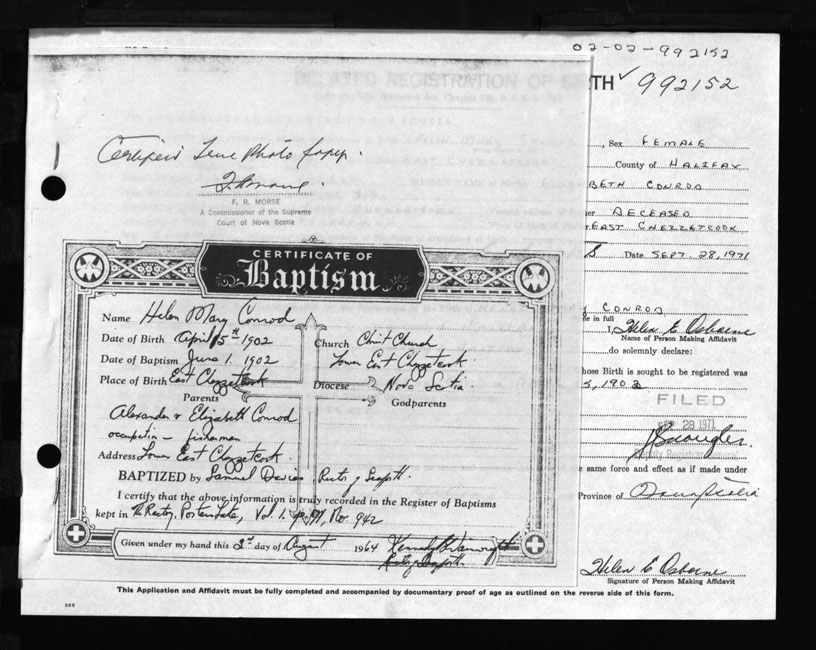 02-02-992152
TH ✓ 992152
DELAYED REGISTRATION OF
Certified True Photo Copy.
F. R. MORSE
A Commissioner of the Supreme
Court of Nova Scotia
CERTIFICATE OF
Baptism
Name Helen Mary Conrod
Date of Birth April 15th 1902
Church Christ Church
Date of Baptism June 1. 1902
Lower East Chezzetcook
Place of Birth East Chezzetcook
Diocese Nova Scotia
Parents
Godparents
Alexander & Elizabeth Conrod
occupation - fisherman
Address Lower East Chezzetcook
BAPTIZED by Samuel Davies Rector of Seaforth
I certify that the above information is truly recorded in the Register of Baptisms
kept in The Rectory, Porters Lake, Vol. 1. No. 942
Given under my hand this 2nd day of August 1964
Rector of Seaforth
, Sex FEMALE
County of HALIFAX
BETH CONROD
er DECEASED
EAST CHEZZETCOOK
Date SEPT. 28, 1971
CONROD
e in full
I, Helen E Osborne
Name of Person Making Affidavit
do solemnly declare:
hose Birth is sought to be registered was
5, 1902
FILED
SEP 28 1971
Deputy Registrar General
e same force and effect as if made under
Province of Nova Scotia
Helen E Osborne
Signature of Person Making Affidavit
This Application and Affidavit must be fully completed and accompanied by documentary proof of age as outlined on the reverse side of this form.